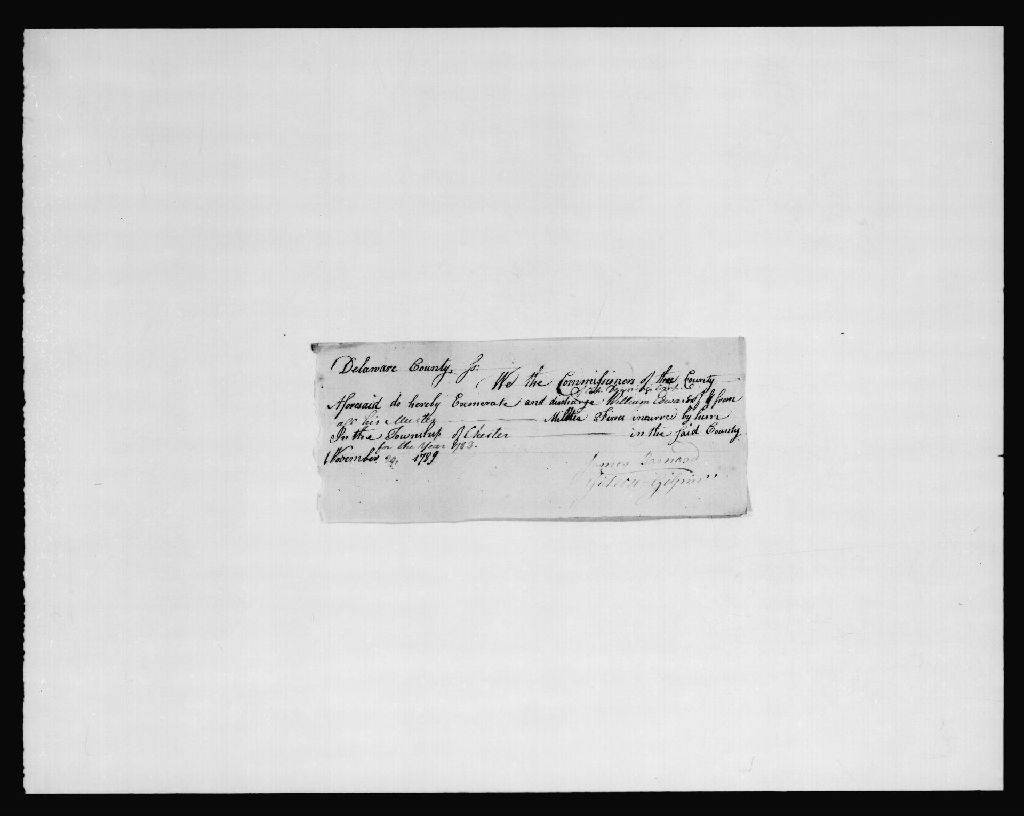 Delaware County, Ss.
We the Commissioners of the County
Aforesaid do hereby Exonerate and discharge William Edwards from
all his Muster Militia Fines incurred by him
In the Township of Chester in the said County
for the Year
November 1789
James Barnard
Gideon Gilpin